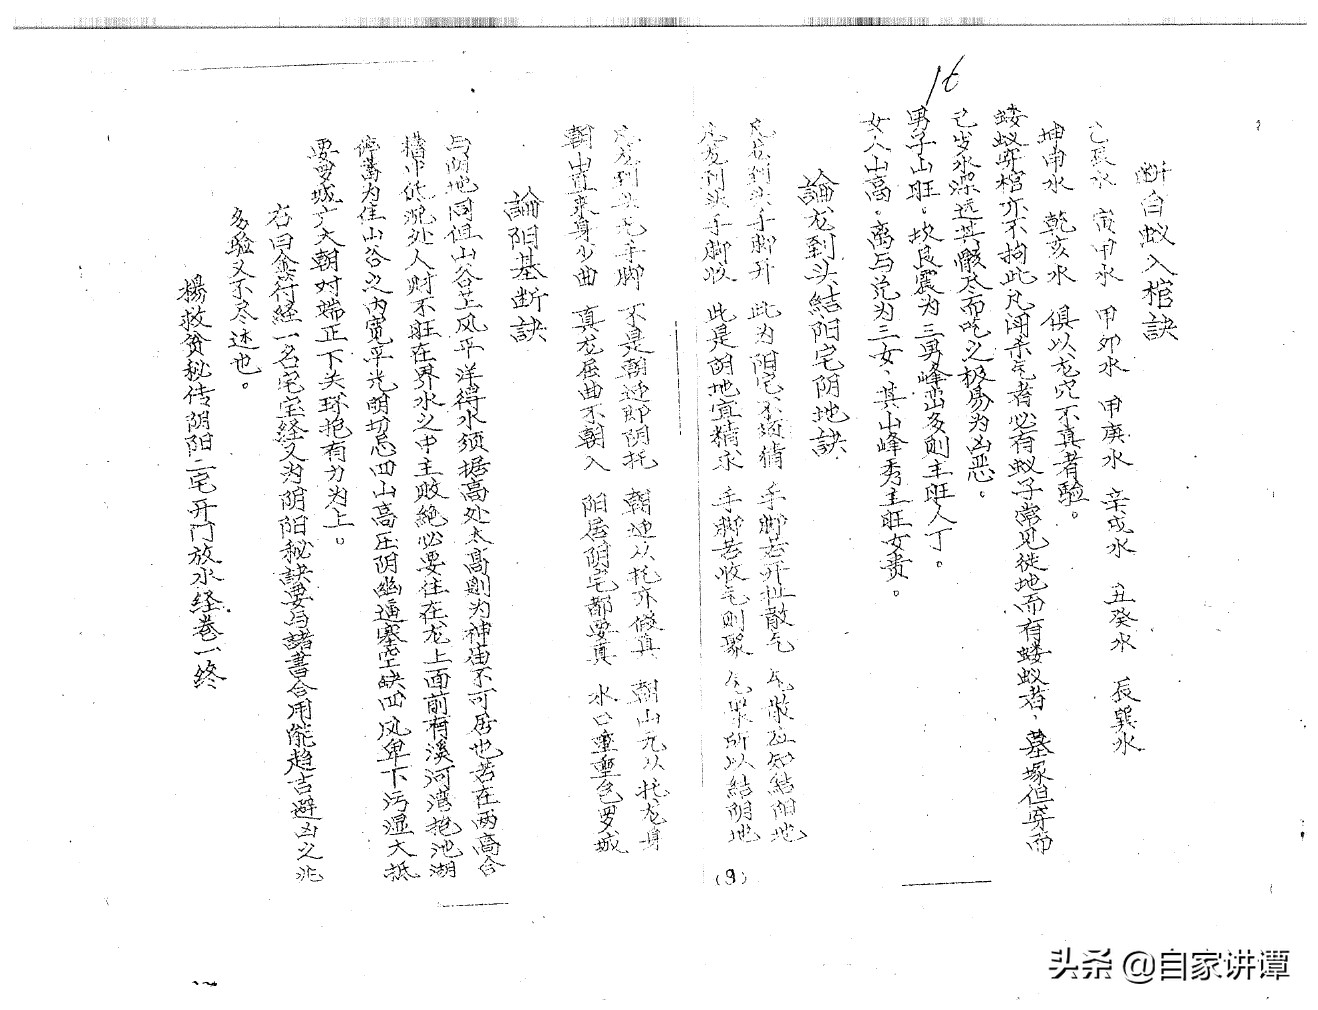 16
断白蚁入棺訣
乙辰水 寅甲水 甲卯水 甲庚水 辛戌水 丑癸水 辰巽水
坤申水 乾亥水 俱以龙穴不真者验。
蝼蚁穿棺亦不拘此凡闭杀气者必有蚁子常见徙地而有蝼蚁者、墓塚但穿而
已岁水深远其骸尽而吃之极易为凶恶。
男子山旺。坎艮震为三男峰峦多则主旺人丁。
女人山高。离与兑为三女、其山峰秀主旺女贵。
論龙到头結阳宅阴地訣
凡龙到头手脚开 此为阳宅不须猜 手脚若开扯散气 气散应知結阳地
凡龙到头手脚收 此是阴地宜精求 手脚若收气则聚 气聚所以結阴地
(9)
凡龙到头无手脚 不是朝迎即阴托 朝迎从托亦假真 朝山无从托龙身
朝山直来身少曲 真龙屈曲不朝入 阳居阴宅都要真 水口重重包罗城
論阳基断訣
与阴地同但山谷上风平洋得水须据高处太高则为神庙不可居也若在两高合
槽中低洼处人财不旺在界水之中主败絶必要住在龙上面前有溪河湾抱池湖
停蓄为佳山谷之内宽平光明切忌四山高压阴幽逼塞空缺四风卑下污湿大抵
要罗城广大朝对端正下关环抱有力为上。
右曰金符经一名宅宝经又为阴阳秘訣要与諸書合用能趋吉避凶之兆
多验又不尽述也。
楊救贫秘传阴阳二宅开门放水经卷一终
头条 @自家讲谭